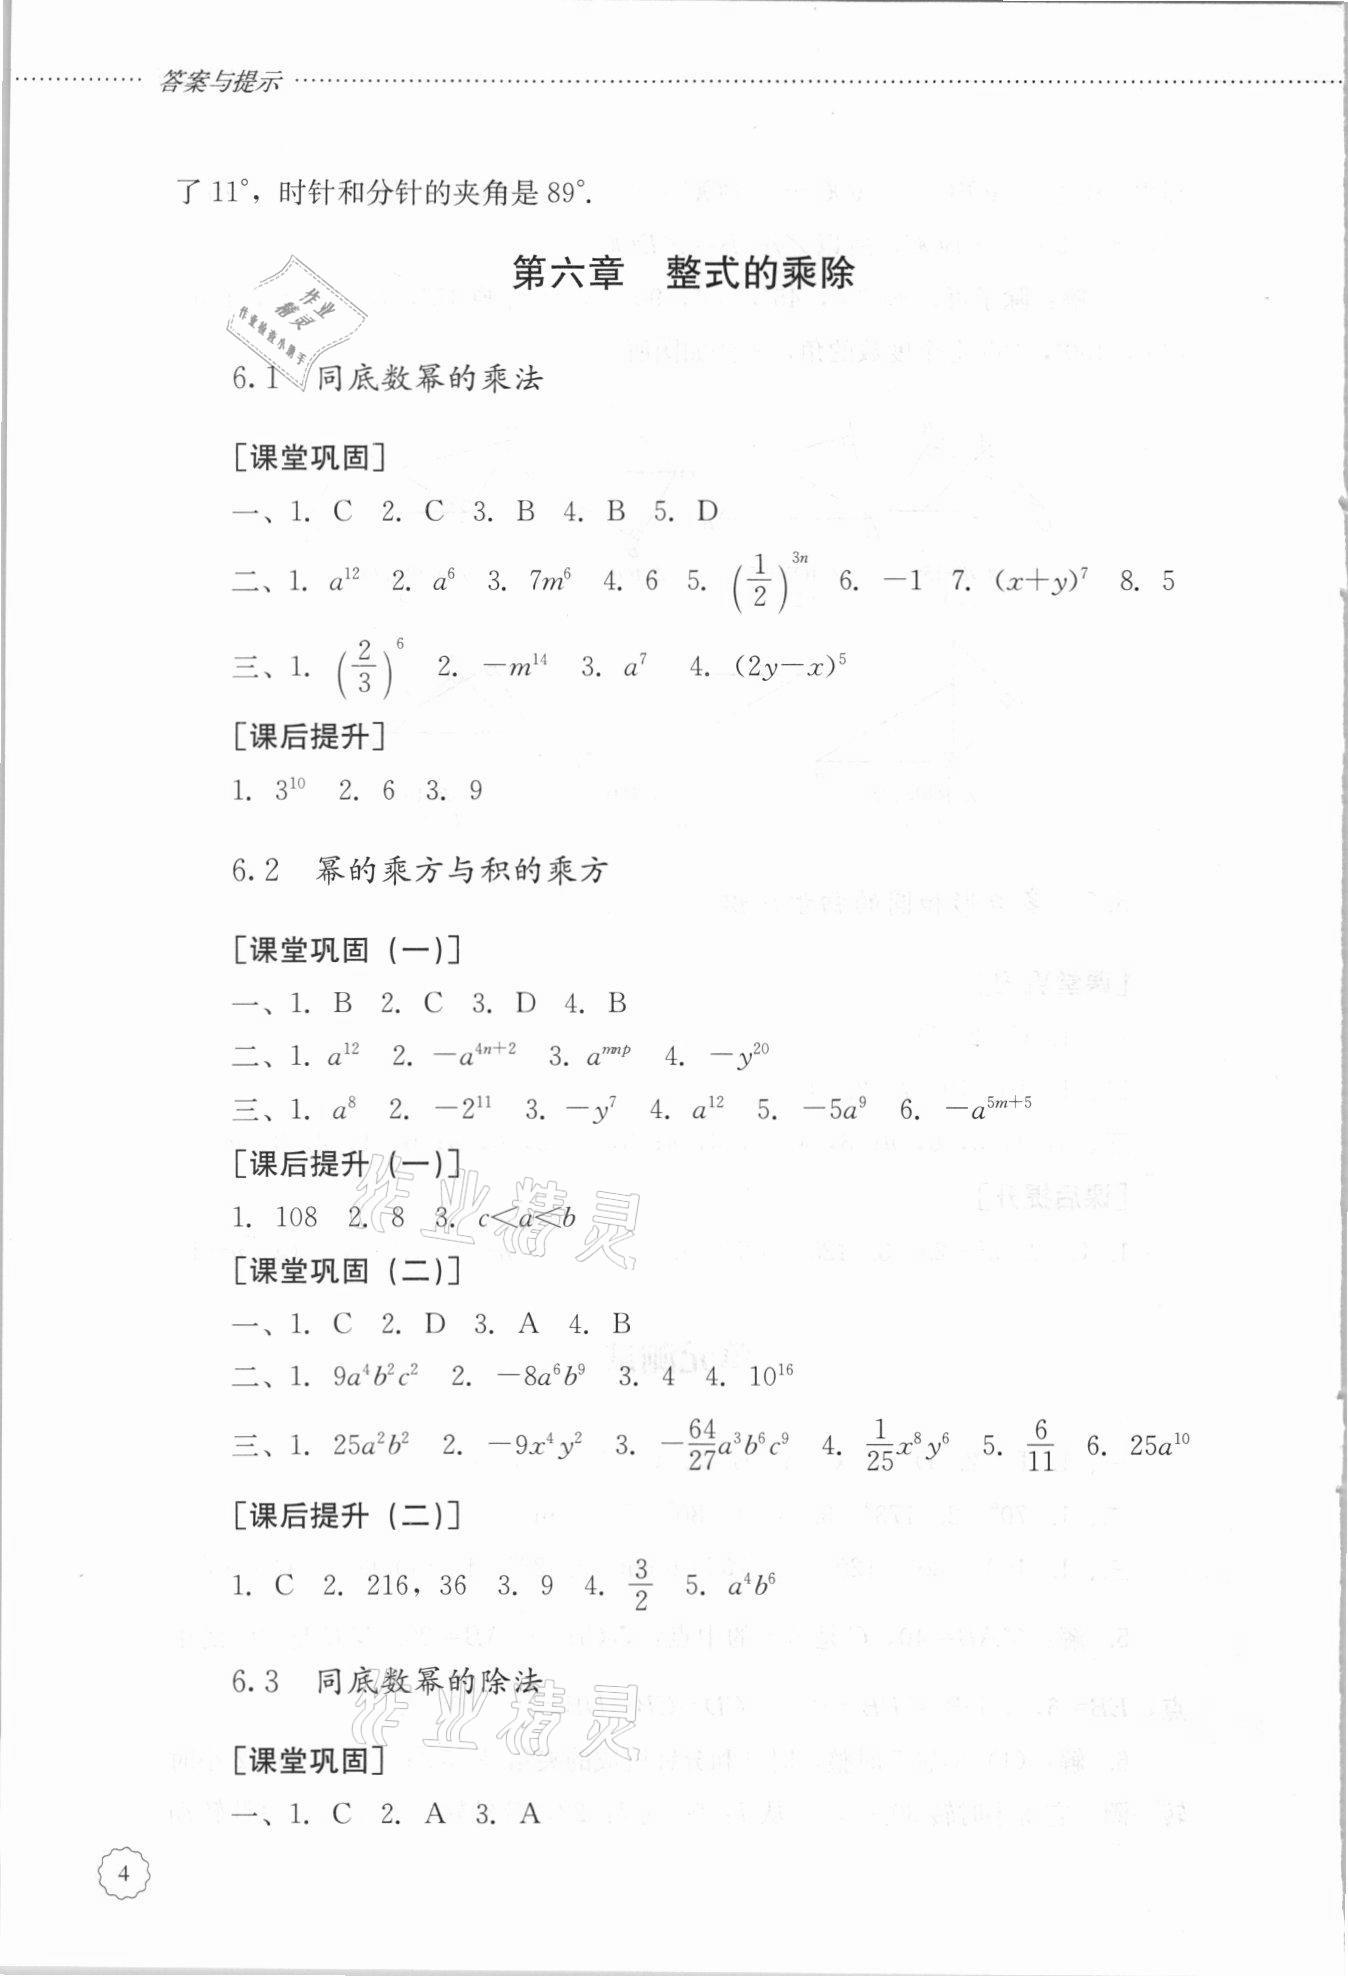 答案与提示
了 11°，时针和分针的夹角是 89°.
第六章　整式的乘除
作业
精灵
作业检查小助手
6.1　同底数幂的乘法
［课堂巩固］
一、1. C　2. C　3. B　4. B　5. D
二、1. a^12　2. a^6　3. 7m^6　4. 6　5. (1/2)^3n　6. －1　7. (x＋y)^7　8. 5
三、1. (2/3)^6　2. －m^14　3. a^7　4. (2y－x)^5
［课后提升］
1. 3^10　2. 6　3. 9
6.2　幂的乘方与积的乘方
［课堂巩固（一）］
一、1. B　2. C　3. D　4. B
二、1. a^12　2. －a^(4n＋2)　3. a^mnp　4. －y^20
三、1. a^8　2. －2^11　3. －y^7　4. a^12　5. －5a^9　6. －a^(5m＋5)
［课后提升（一）］
1. 108　2. 8　3. c＜a＜b
作业精灵
［课堂巩固（二）］
一、1. C　2. D　3. A　4. B
二、1. 9a^4b^2c^2　2. －8a^6b^9　3. 4　4. 10^16
三、1. 25a^2b^2　2. －9x^4y^2　3. －64/27 a^3b^6c^9　4. 1/25 x^8y^6　5. 6/11　6. 25a^10
［课后提升（二）］
1. C　2. 216，36　3. 9　4. 3/2　5. a^4b^6
6.3　同底数幂的除法
作业精灵
［课堂巩固］
一、1. C　2. A　3. A
4